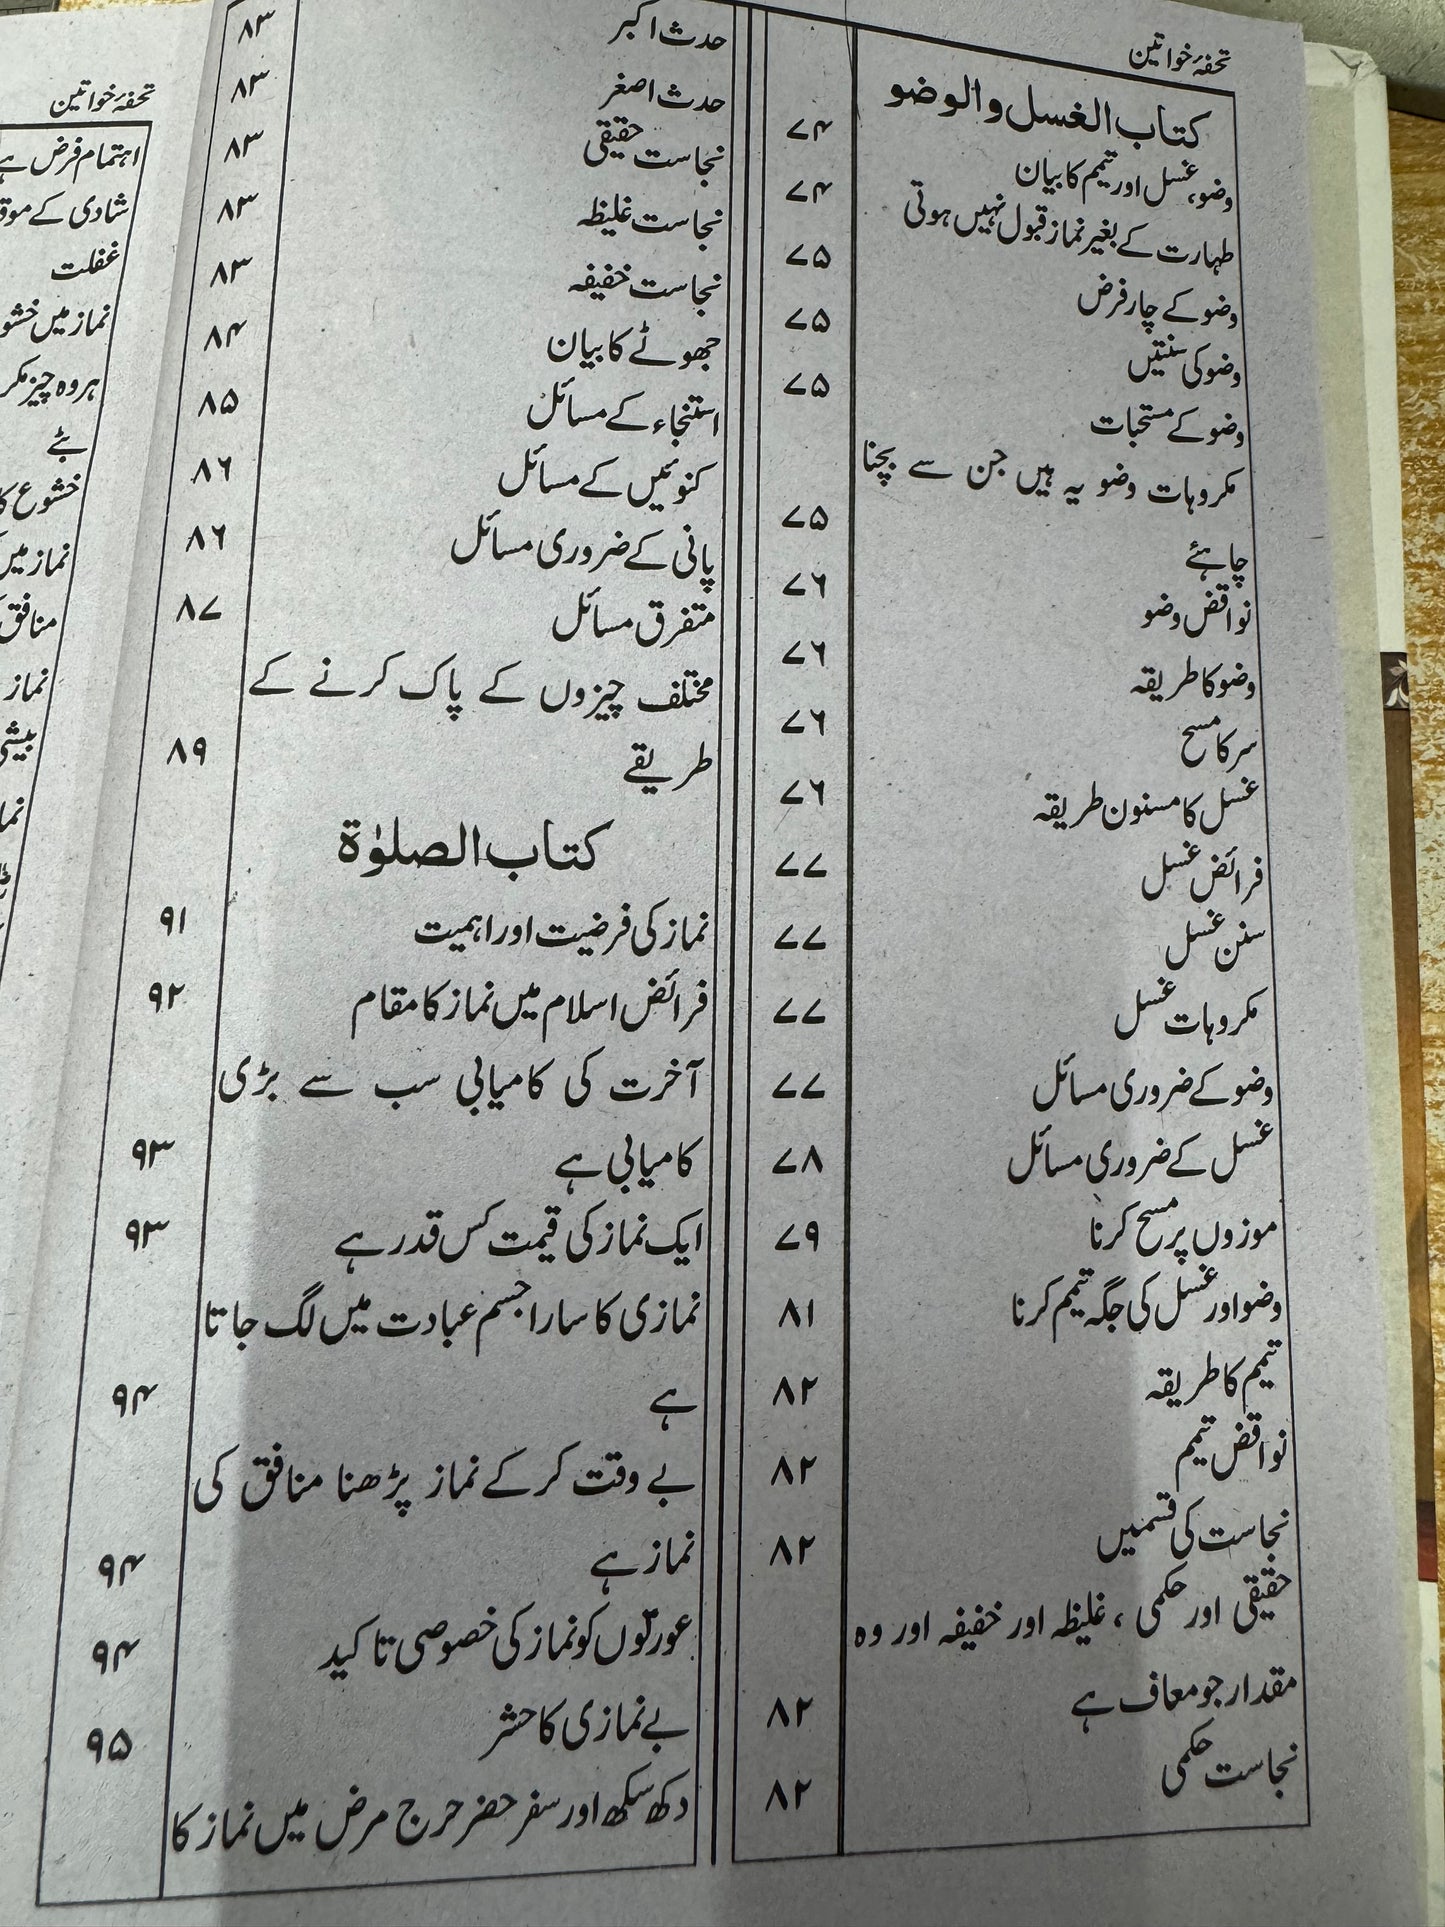 تحفۂ خواتین
کتاب الغسل والوضو
وضو، غسل اور تیمم کا بیان ۷۴
طہارت کے بغیر نماز قبول نہیں ہوتی ۷۴
وضو کے چار فرض ۷۵
وضو کی سنتیں ۷۵
وضو کے مستحبات ۷۵
مکروہات وضو یہ ہیں جن سے بچنا
چاہئے ۷۵
نواقض وضو ۷۶
وضو کا طریقہ ۷۶
سر کا مسح ۷۶
غسل کا مسنون طریقہ ۷۶
فرائض غسل ۷۷
سنن غسل ۷۷
مکروہات غسل ۷۷
وضو کے ضروری مسائل ۷۷
غسل کے ضروری مسائل ۷۸
موزوں پر مسح کرنا ۷۹
وضو اور غسل کی جگہ تیمم کرنا ۸۱
تیمم کا طریقہ ۸۲
نواقض تیمم ۸۲
نجاست کی قسمیں ۸۲
حقیقی اور حکمی ، غلیظہ اور خفیفہ اور وہ
مقدار جو معاف ہے ۸۲
نجاست حکمی ۸۲
حدث اکبر ۸۳
حدث اصغر ۸۳
نجاست حقیقی ۸۳
نجاست غلیظہ ۸۳
نجاست خفیفہ ۸۳
جھوٹے کا بیان ۸۴
استنجاء کے مسائل ۸۵
کنوئیں کے مسائل ۸۶
پانی کے ضروری مسائل ۸۶
متفرق مسائل ۸۷
مختلف چیزوں کے پاک کرنے کے
طریقے ۸۹
کتاب الصلوٰۃ
نماز کی فرضیت اور اہمیت ۹۱
فرائض اسلام میں نماز کا مقام ۹۲
آخرت کی کامیابی سب سے بڑی
کامیابی ہے ۹۳
ایک نماز کی قیمت کس قدر ہے ۹۳
نمازی کا سارا جسم عبادت میں لگ جاتا
ہے ۹۴
بے وقت کر کے نماز پڑھنا منافق کی
نماز ہے ۹۴
عورتوں کو نماز کی خصوصی تاکید ۹۴
بے نمازی کا حشر ۹۵
دکھ سکھ اور سفر حضر حرج مرض میں نماز کا
تحفۂ خواتین
اہتمام فرض ہے
شادی کے موق
غفلت
نماز میں خشو
ہر وہ چیز مکر
بٹے
خشوع کا
نماز میں
منافق
نماز
بیشی
نما